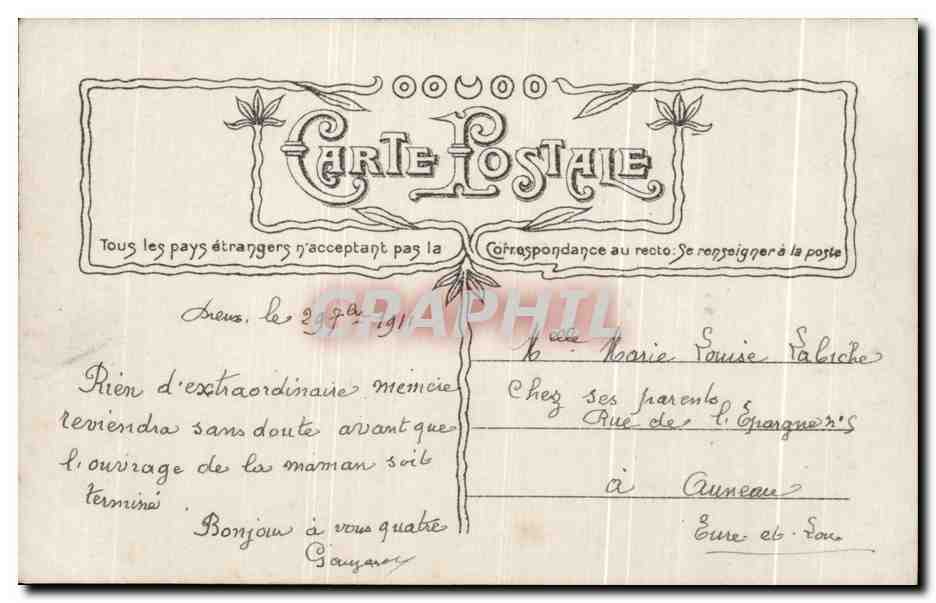 CARTE POSTALE
Tous les pays étrangers n'acceptant pas la Correspondance au recto: Se renseigner à la poste
CPAPHIL
Dreux, le 29 7bre 191
Rien d'extraordinaire
reviendra sans doute avant que
l'ouvrage de la maman soit
terminé
Bonjour à vous quatre
Melle Marie Louise Labiche
Chez ses parents
Rue de l'Épargne n°5
à Auneau
Eure et Loir